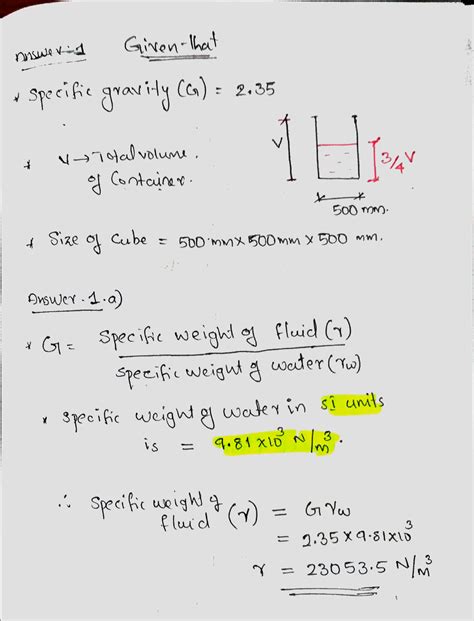 Answer:-1 Given-that
* Specific gravity (G) = 2.35
* V → Total volume.
of Container.
V
3/4 V
500 mm.
* Size of Cube = 500 mm x 500 mm x 500 mm.
Answer.1.a)
* G = Specific weight of fluid (γ)
Specific weight of water (γw)
* Specific weight of water in SI units
is = 9.81 x10³ N/m³.
∴ Specific weight of
fluid (γ) = G γw
= 2.35 x 9.81x10³
γ = 23053.5 N/m³